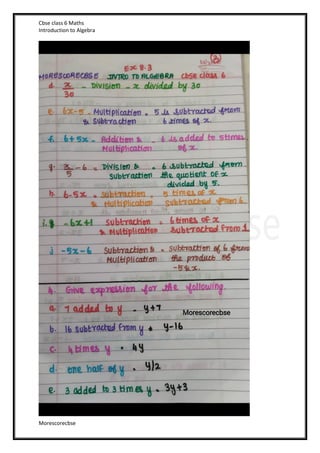 Cbse class 6 Maths
Introduction to Algebra
Ex 8.3
MORESCORECBSE INTRO TO ALGEBRA CBSE Class 6
d. x/30 - Division - x divided by 30
e. 6x-5 - Multiplication - 5 is subtracted from
& Subtraction 6 times of x.
f. 6+5x - Addition & - 6 is added to 5times
Multiplication of x.
g. x/5 - 6 = Division & = 6 subtracted from
Subtraction the quotient of x
divided by 5.
h. 6-5x = Subtraction = 5 times of x
& Multiplication subtracted from 6.
i. -6x+1 Subtraction = 6 times of x
& Multiplication Subtracted from 1
j -5x-6 Subtraction & = Subtraction of 6 from
Multiplication the product of
-5 & x.
4. Give expression for the following.
a. 7 added to y - y+7
Morescorecbse
b. 16 subtracted from y = y-16
c. 4 times y = 4y
d. one half of y = y/2
e. 3 added to 3 times y = 3y+3
Morescorecbse